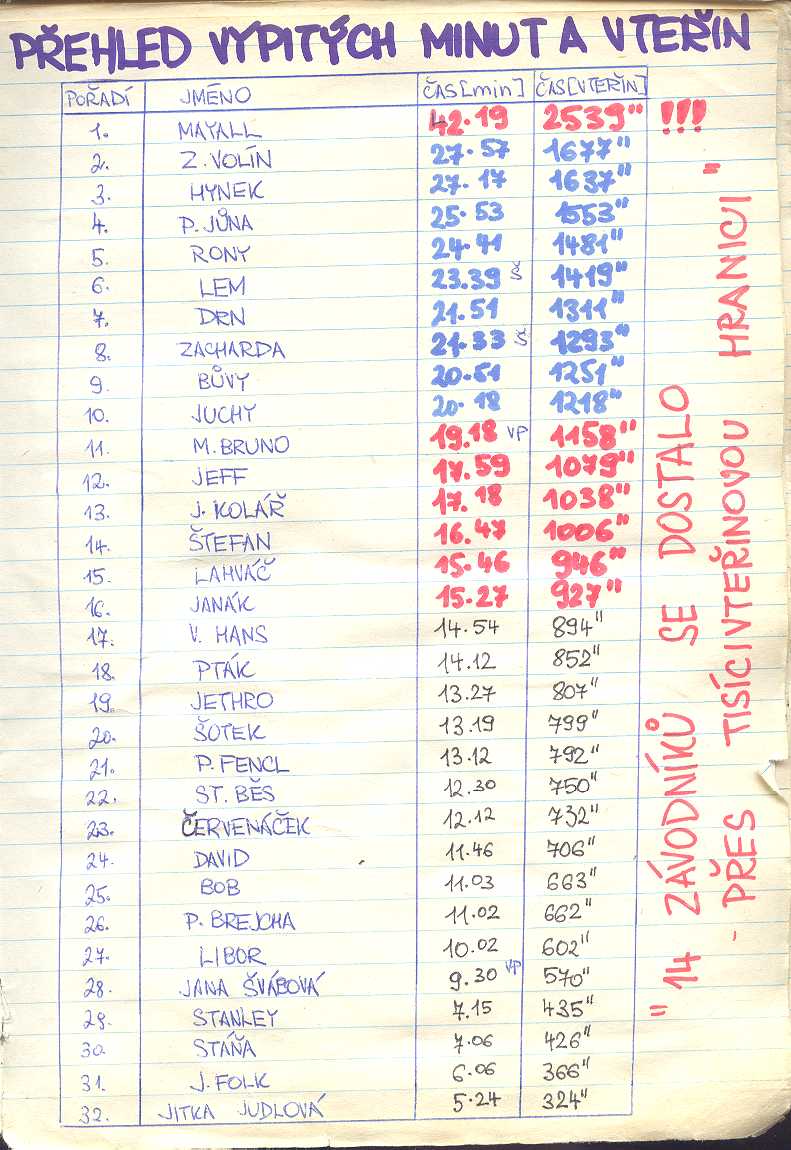 PŘEHLED VYPITÝCH MINUT A VTEŘIN
POŘADÍ JMÉNO ČAS [min] ČAS [VTEŘIN]
1. MAYALL 42.19 2539" !!!
2. Z. VOLÍN 27.57 1677"
3. HYNEK 27.17 1637"
4. P. JŮNA 25.53 1553"
5. RONY 24.41 1481"
6. LEM 23.39 Š 1419"
7. DRN 21.51 1311"
8. ZACHARDA 21.33 Š 1293"
9. BŮVY 20.51 1251"
10. JUCHY 20.18 1218"
11. M. BRUNO 19.18 VP 1158"
12. JEFF 17.59 1079"
13. J. KOLÁŘ 17.18 1038"
14. ŠTEFAN 16.47 1006"
15. LAHVÁČ 15.46 946"
16. JANÁK 15.27 927"
17. V. HANS 14.54 894"
18. PTÁK 14.12 852"
19. JETHRO 13.27 807"
20. ŠOTEK 13.19 799"
21. P. FENCL 13.12 792"
22. ST. BĚS 12.30 750"
23. ČERVENÁČEK 12.12 732"
24. DAVID 11.46 706"
25. BOB 11.03 663"
26. P. BREJCHA 11.02 662"
27. LIBOR 10.02 602"
28. JANA ŠVÁBOVÁ 9.30 VP 570"
29. STANLEY 7.15 435"
30. STÁŇA 7.06 426"
31. J. FOLK 6.06 366"
32. JITKA JUDLOVÁ 5.24 324"
" 14 ZÁVODNÍKŮ SE DOSTALO
- PŘES TISÍCIVTEŘINOVOU HRANICI "